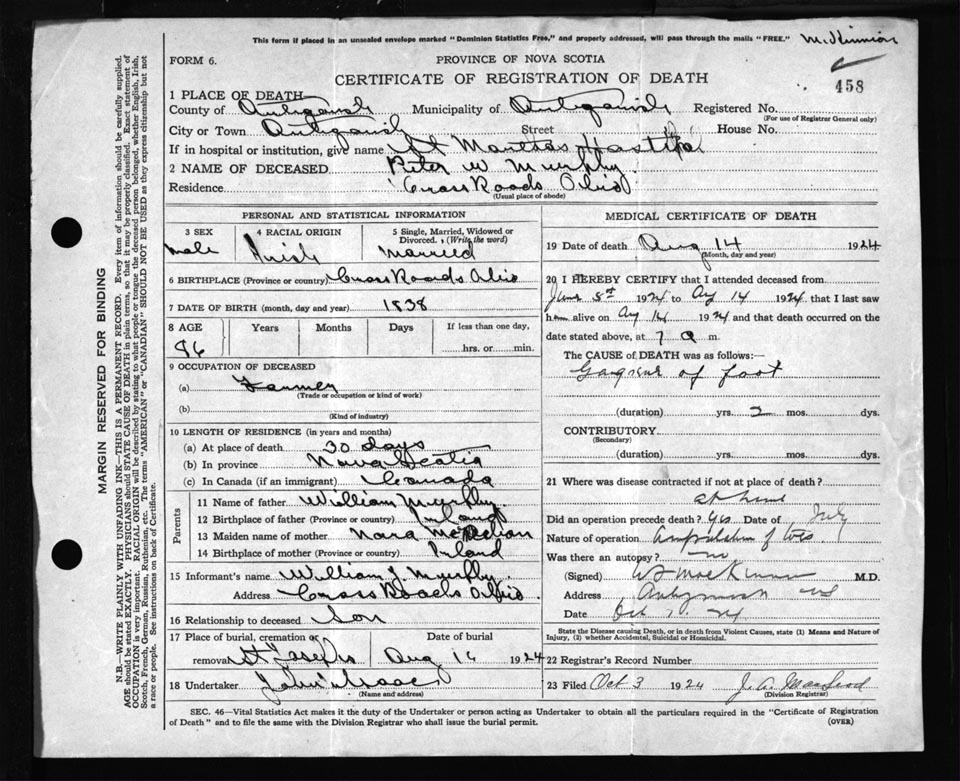 This form if placed in an unsealed envelope marked "Dominion Statistics Free," and properly addressed, will pass through the mails "FREE."
FORM 6.
PROVINCE OF NOVA SCOTIA
CERTIFICATE OF REGISTRATION OF DEATH
458
1 PLACE OF DEATH
County of Antigonish Municipality of Antigonish Registered No.
(For use of Registrar General only)
City or Town Antigonish Street House No.
If in hospital or institution, give name St Marthas Hospital
2 NAME OF DECEASED Peter W Murphy
Residence Cross Roads Ohio
(Usual place of abode)
PERSONAL AND STATISTICAL INFORMATION
3 SEX 4 RACIAL ORIGIN 5 Single, Married, Widowed or Divorced. (Write the word)
male Irish Married
6 BIRTHPLACE (Province or country) Cross Roads Ohio
7 DATE OF BIRTH (month, day and year) 1838
8 AGE Years Months Days If less than one day,
86 hrs. or min.
9 OCCUPATION OF DECEASED
(a) Farmer
(Trade or occupation or kind of work)
(b)
(Kind of industry)
10 LENGTH OF RESIDENCE (in years and months)
(a) At place of death 30 days
(b) In province Nova Scotia
(c) In Canada (if an immigrant) Canada
Parents
11 Name of father William Murphy
12 Birthplace of father (Province or country) Inland
13 Maiden name of mother Nora
14 Birthplace of mother (Province or country) Inland
15 Informant's name William J. Murphy
Address Cross Roads Ohio
16 Relationship to deceased Son
17 Place of burial, cremation or removal St Josephs Date of burial Aug 16 1924
18 Undertaker John Isaac
(Name and address)
MEDICAL CERTIFICATE OF DEATH
19 Date of death Aug 14 1924
(Month, day and year)
20 I HEREBY CERTIFY that I attended deceased from
June 1924 to Aug 14 1924 that I last saw
him alive on Aug 14 1924 and that death occurred on the
date stated above, at 7 a m.
The CAUSE OF DEATH was as follows:
Gangrene of foot
(duration) yrs. 2 mos. dys.
CONTRIBUTORY
(Secondary)
(duration) yrs. mos. dys.
21 Where was disease contracted if not at place of death?
at home
Did an operation precede death? yes Date of July
Nature of operation Amputation of toes
Was there an autopsy? no
(Signed) MacKinnon M.D.
Address Antigonish NS
Date Oct 24
State the Disease causing Death, or in death from Violent Causes, state (1) Means and Nature of Injury, (2) whether Accidental, Suicidal or Homicidal.
22 Registrar's Record Number
23 Filed Oct 3 1924 J. A. MacLeod
(Division Registrar)
SEC. 46—Vital Statistics Act makes it the duty of the Undertaker or person acting as Undertaker to obtain all the particulars required in the "Certificate of Registration
of Death" and to file the same with the Division Registrar who shall issue the burial permit. (OVER)
MARGIN RESERVED FOR BINDING
N.B.—WRITE PLAINLY WITH UNFADING INK—THIS IS A PERMANENT RECORD. Every item of information should be carefully supplied.
AGE should be stated EXACTLY. PHYSICIANS should STATE CAUSE OF DEATH in plain terms, so that it may be properly classified. Exact statement of
OCCUPATION is very important. RACIAL ORIGIN will be described by stating to what people or tongue the deceased person belonged, whether English, Irish,
Scotch, French, German, Russian, Ruthenian, etc. The terms "AMERICAN" or "CANADIAN" SHOULD NOT BE USED as they express citizenship but not
a race or people. See instructions on back of Certificate.